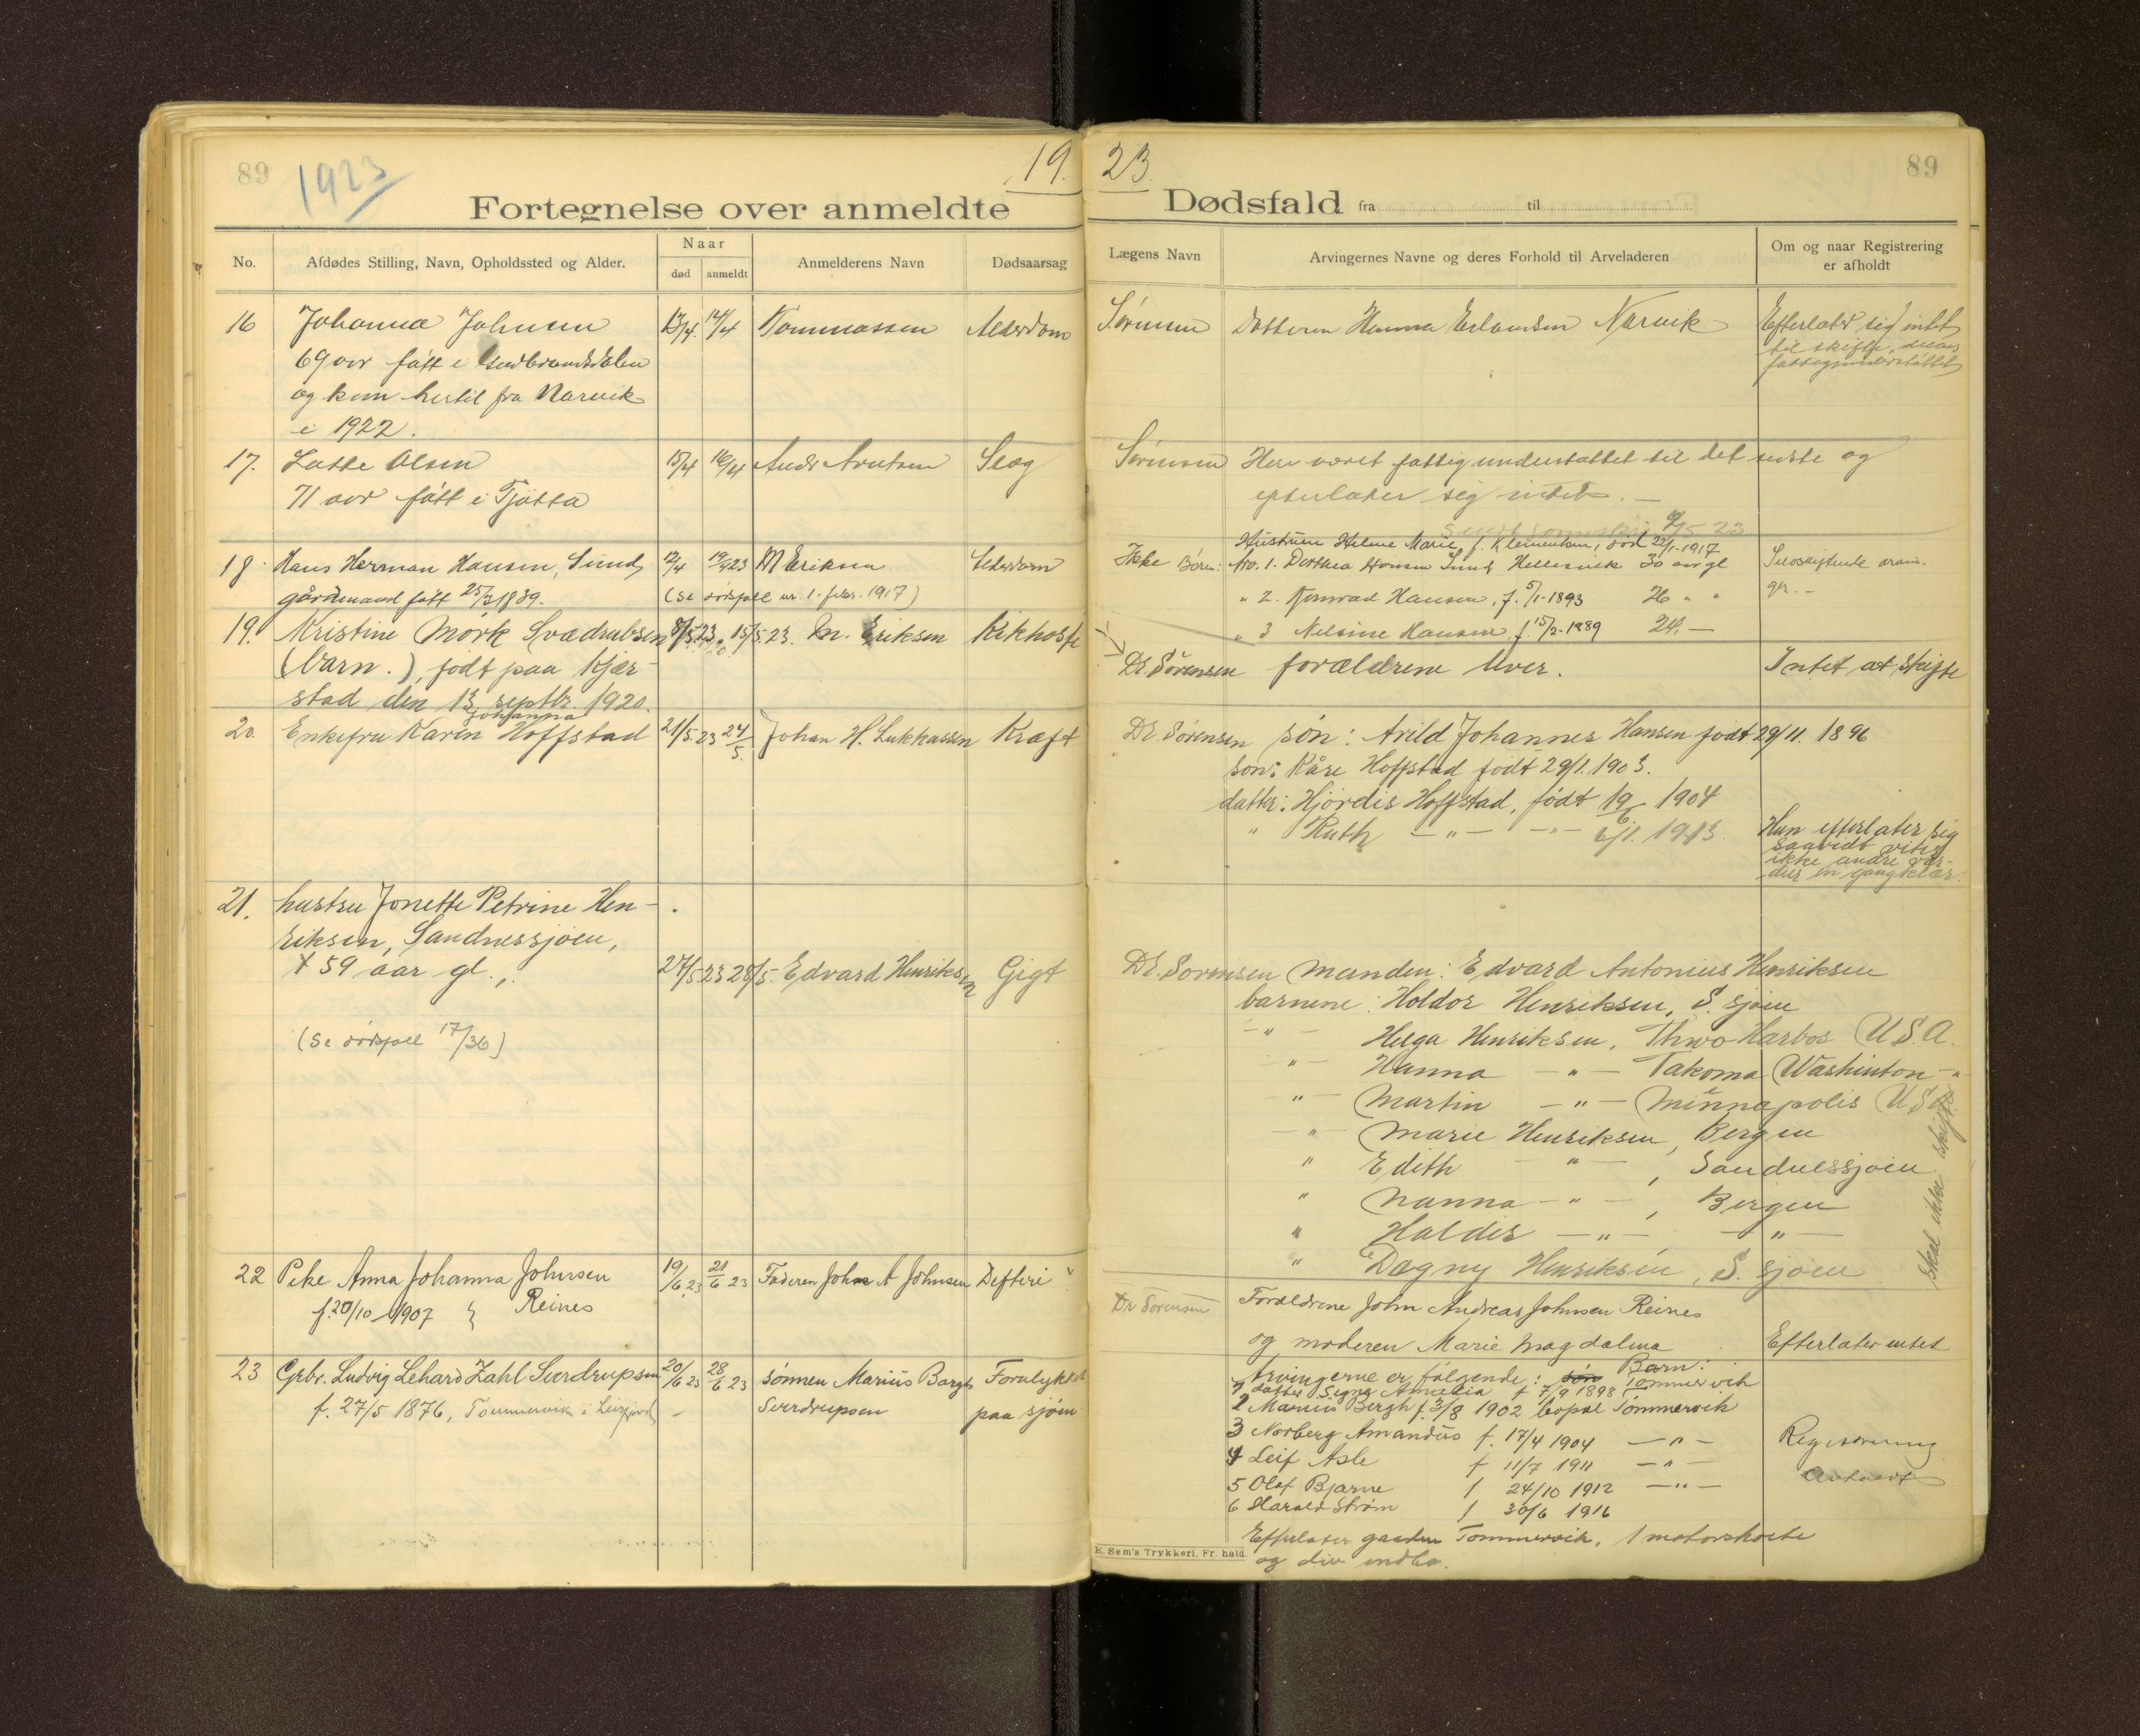 89
1923
19.
Fortegnelse over anmeldte
No.
Afdødes Stilling, Navn, Opholdssted og Alder.
Naar
død
anmeldt
Anmelderens Navn
Dødsaarsag
16
Johanna Johnsen
13/4
14/4
Tommassen
Alderdom
69 aar født i Gudbrandsdalen
og kom hertil fra Narvik
i 1922.
17.
Lasse Olsen
15/4
16/4
Andr Arntsen
Slag
71 aar født i Tjøtta
18
Hans Herman Hansen, Sund,
12/4
19/4 23
M Eriksen
Alderdom
gårdmand født 25/3 1839.
(Se dødsfall nr. 1. febr. 1917)
19.
Kristine Mørk Sværdrubsen
8/5 23
15/5 23.
M. Eriksen
Kikhoste
(barn.), født paa Kjær-
stad den 13 septbr. 1920.
20.
Enkefru Karen Johanna Hoffstad
21/5 23
24/5.
Johan H. Lukkassen
Kræft
21.
hustru Jonette Petrine Hen-
riksen, Sandnessjøen,
59 aar gl.,
27/5 23
28/5.
Edvard Henriksen
Gigt
(Se dødsfall 17/36)
22
Pike Anna Johanna Johnsen
19/6 23
21/6 23
Faderen John A Johnsen
Difteri
f. 20/10 1907 } Reines
23
Gbr. Ludvig Lehard Zahl Sverdrupsen
20/6 23
28/6 23
sønnen Marius Bergh
Forulykket
f. 27/5 1876, Tømmervik i Leirfjord
Sverdrupsen
paa sjøen
23.
89
Dødsfald fra til
Lægens Navn
Arvingernes Navne og deres Forhold til Arveladeren
Om og naar Registrering
er afholdt
Sørensen
Datteren Hanna Erlandsen Narvik
Efterlater sig intet
til skifte,
fattigunderstøttet
Sørensen
Har været fattigunderstøttet til det sidste og
efterlater sig intet.
Hustruen Helene Marie f. Klementsen, død 22/1-1917
Ikke
Børn:
No. 1. Dorthea Hansen Sund Hellesvik 30 aar gl
" 2. Konrad Hansen, f. 5/1-1893 26 " "
" 3 Nilsine Hansen f. 15/2-1889 24. —
Dr. Sørensen
forældrene lever.
Intet at skifte
Dr. Sørensen
søn: Arild Johannes Hansen født 29/11. 1896
søn: Kåre Hoffstad født 29/1. 1903.
datter: Hjørdis Hoffstad, født 19/6 1904
" Ruth — " — — " — 6/1. 1913.
Hun efterlater sig
saavidt vites
ikke andre vær-
dier en gangklær.
Dr. Sørensen
Manden: Edvard Antonius Henriksen
barnene: Haldor Henriksen, S. sjøen
— " — Helga Henriksen, Thwo Harbos U.S.A.
" — Hanna — " — Takoma Washinton — " —
" — Martin — " — Minnapolis U.S.A.
— " — Marie Henriksen, Bergen
" Edith — " —, Sandnessjøen
" Nanna — " —, Bergen
" Haldis — " — — " —
" Dagny Henriksen, S. sjøen
Skal ikke skiftes
Dr Sørensen
Foreldrene John Andreas Johnsen Reines
og moderen Marie Magdalena
Efterlater intet
Arvingerne er følgende: søn Barn:
1 datter Signe Amalia f 7/9 1898 Tømmervik
2 Marius Bergh f. 3/8 1902 bopæl Tømmervik
3 Norberg Amandus f. 17/4 1904 — " —
4 Leif Asle f 11/7 1911 — " —
5 Olaf Bjarne f 24/10 1912 — " —
6 Harald Strøm f 30/6 1916
Registrering
Avholdt
Efterlater gaarden Tømmervik, 1 motorskøite
og div indbo.
E. Sem's Trykkeri, Fr. hald.